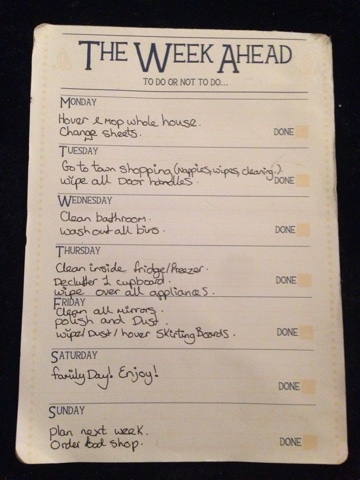 THE WEEK AHEAD
TO DO OR NOT TO DO...
MONDAY
Hover & Mop whole house.
Change sheets.
DONE
TUESDAY
Go to town shopping (Nappies, wipes, cleaning.)
wipe all Door handles.
DONE
WEDNESDAY
Clean bathroom.
wash out all bins.
DONE
THURSDAY
Clean inside fridge/freezer.
Declutter 1 cupboard.
wipe over all appliances.
DONE
FRIDAY
Clean all Mirrors.
polish and Dust.
wipe/Dust/hover Skirting Boards.
DONE
SATURDAY
family Day! Enjoy!
DONE
SUNDAY
plan next week.
Order food shop.
DONE